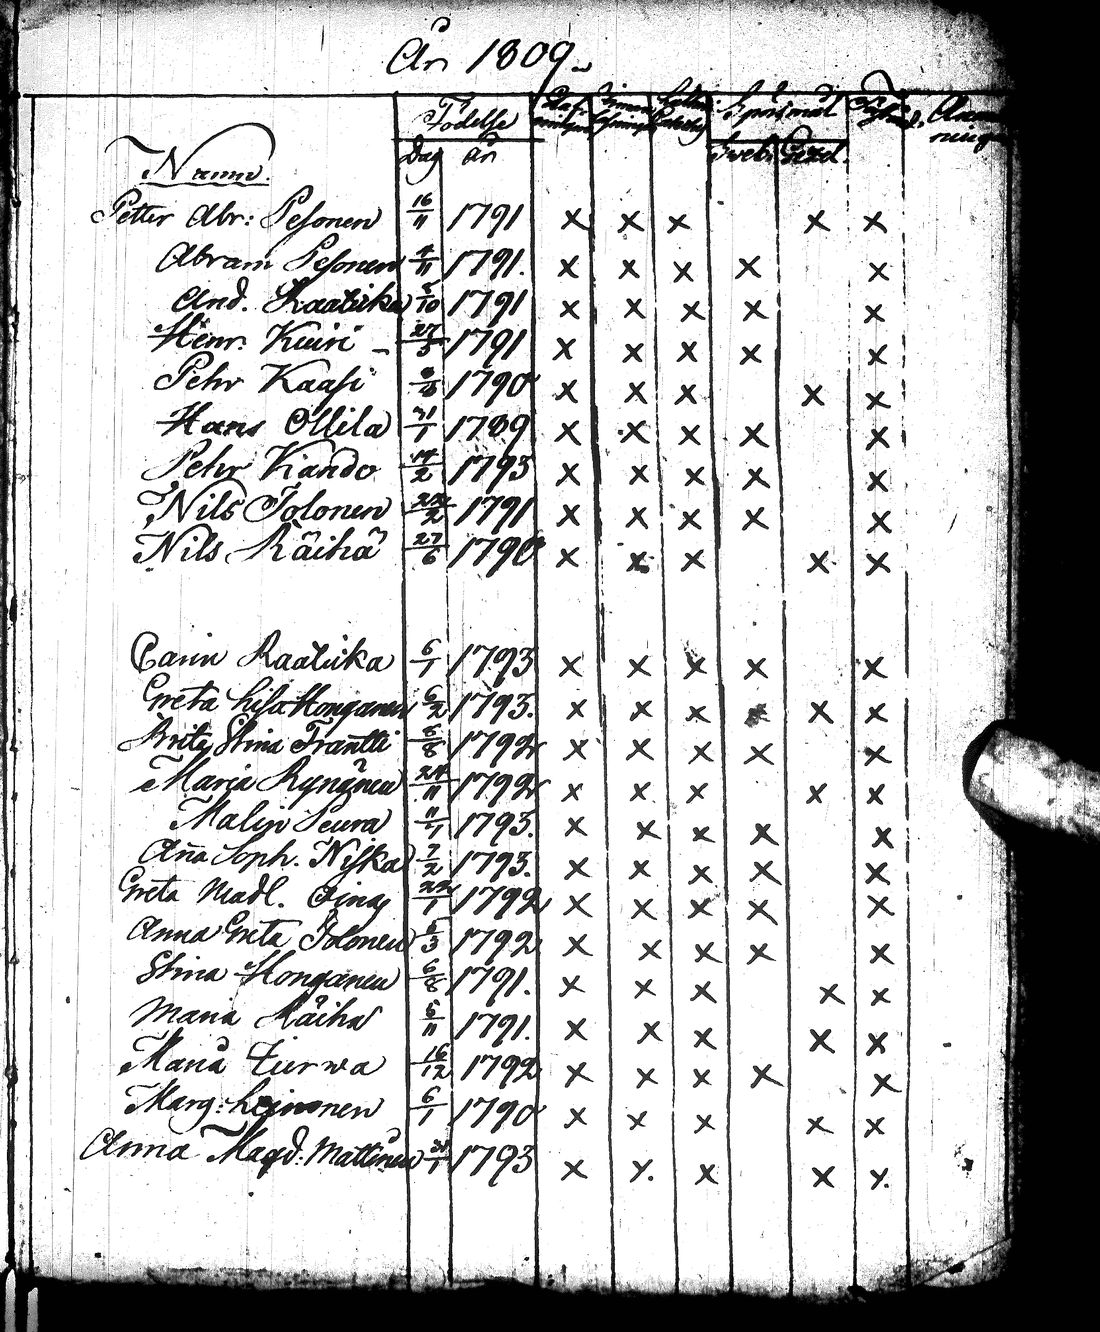 År 1809.
Födelse
Dag år
Namn.
Petter Abr: Pesonen 16/11 1791 x x x x x
Abram Pesonen 4/11 1791. x x x x x
And. Raatikka 8/10 1791 x x x x x
Henr. Kuiri 27/5 1791 x x x x x
Pehr Kaasi 1790 x x x x x
Hans Ollila 1/1 1789 x x x x x
Pehr Kando 14/2 1793 x x x x x
Nils Tolonen 22/2 1791 x x x x x
Nils Räihä 27/6 1790 x x x x x
Carin Raatikka 6/1 1793 x x x x x
Greta Lisa Honganen 6/2 1793. x x x x x
Brita Stina Trantti 6/8 1792 x x x x x
Maria Rynänen 24/11 1792 x x x x x
Malin Seura 11/7 1793. x x x x x
Aña Soph. Niska 7/2 1793. x x x x x
Greta Madl. 22/1 1792 x x x x x
Anna Greta Tolonen 1792 x x x x x
Stina Honganen 6/8 1791. x x x x x
Maria Räihä 6/11 1791. x x x x x
Maria Turwa 16/12 1792 x x x x x
Marg: Leinonen 6/1 1790 x x x x x
Anna Magd: Mattinen 1793 x x x x x